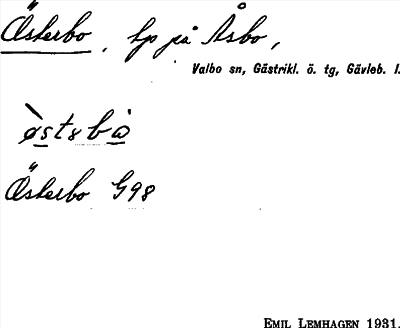 Österbo, lp på Åsbo,
Valbo sn, Gästrikl. ö. tg, Gävleb. l.
Österbo G98
EMIL LEMHAGEN 1931.